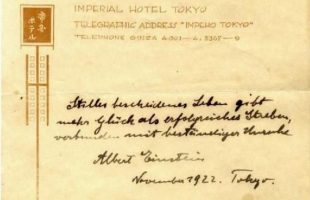 帝國ホテル
IMPERIAL HOTEL TOKYO
TELEGRAPHIC ADDRESS "IMPEHO TOKYO"
TELEPHONE GINZA
Stilles bescheidenes Leben gibt
mehr Glück als erfolgreiches Streben,
verbunden mit beständiger Unruhe
Albert Einstein
November 1922. Tokyo.